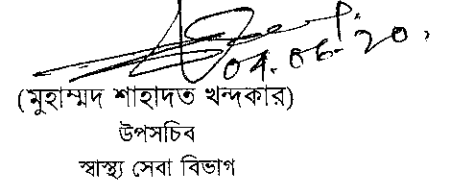 04.06.20,
(মুহাম্মদ শাহাদত খন্দকার)
উপসচিব
স্বাস্থ্য সেবা বিভাগ